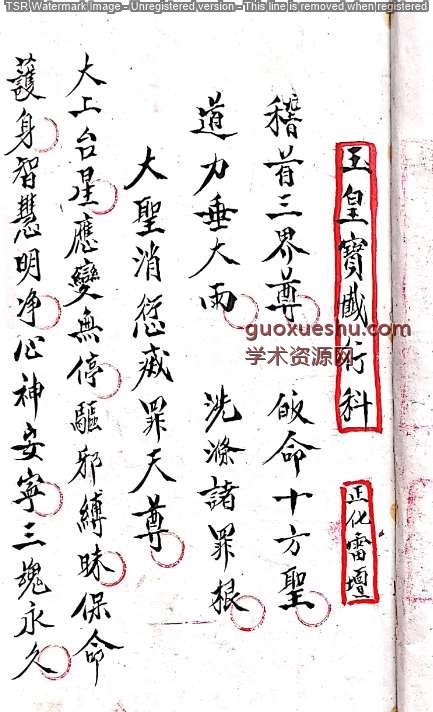 TSR Watermark Image - Unregistered version - This line is removed when registered
玉皇寶懺行科 正化雷壇
稽首三界尊 皈命十方聖
道力垂大雨 洗滌諸罪根
大聖消愆滅罪天尊
大上台星應變無停驅邪縛昧保命
護身智慧明净心神安寧三魂永久
guoxueshu.com
学术资源网